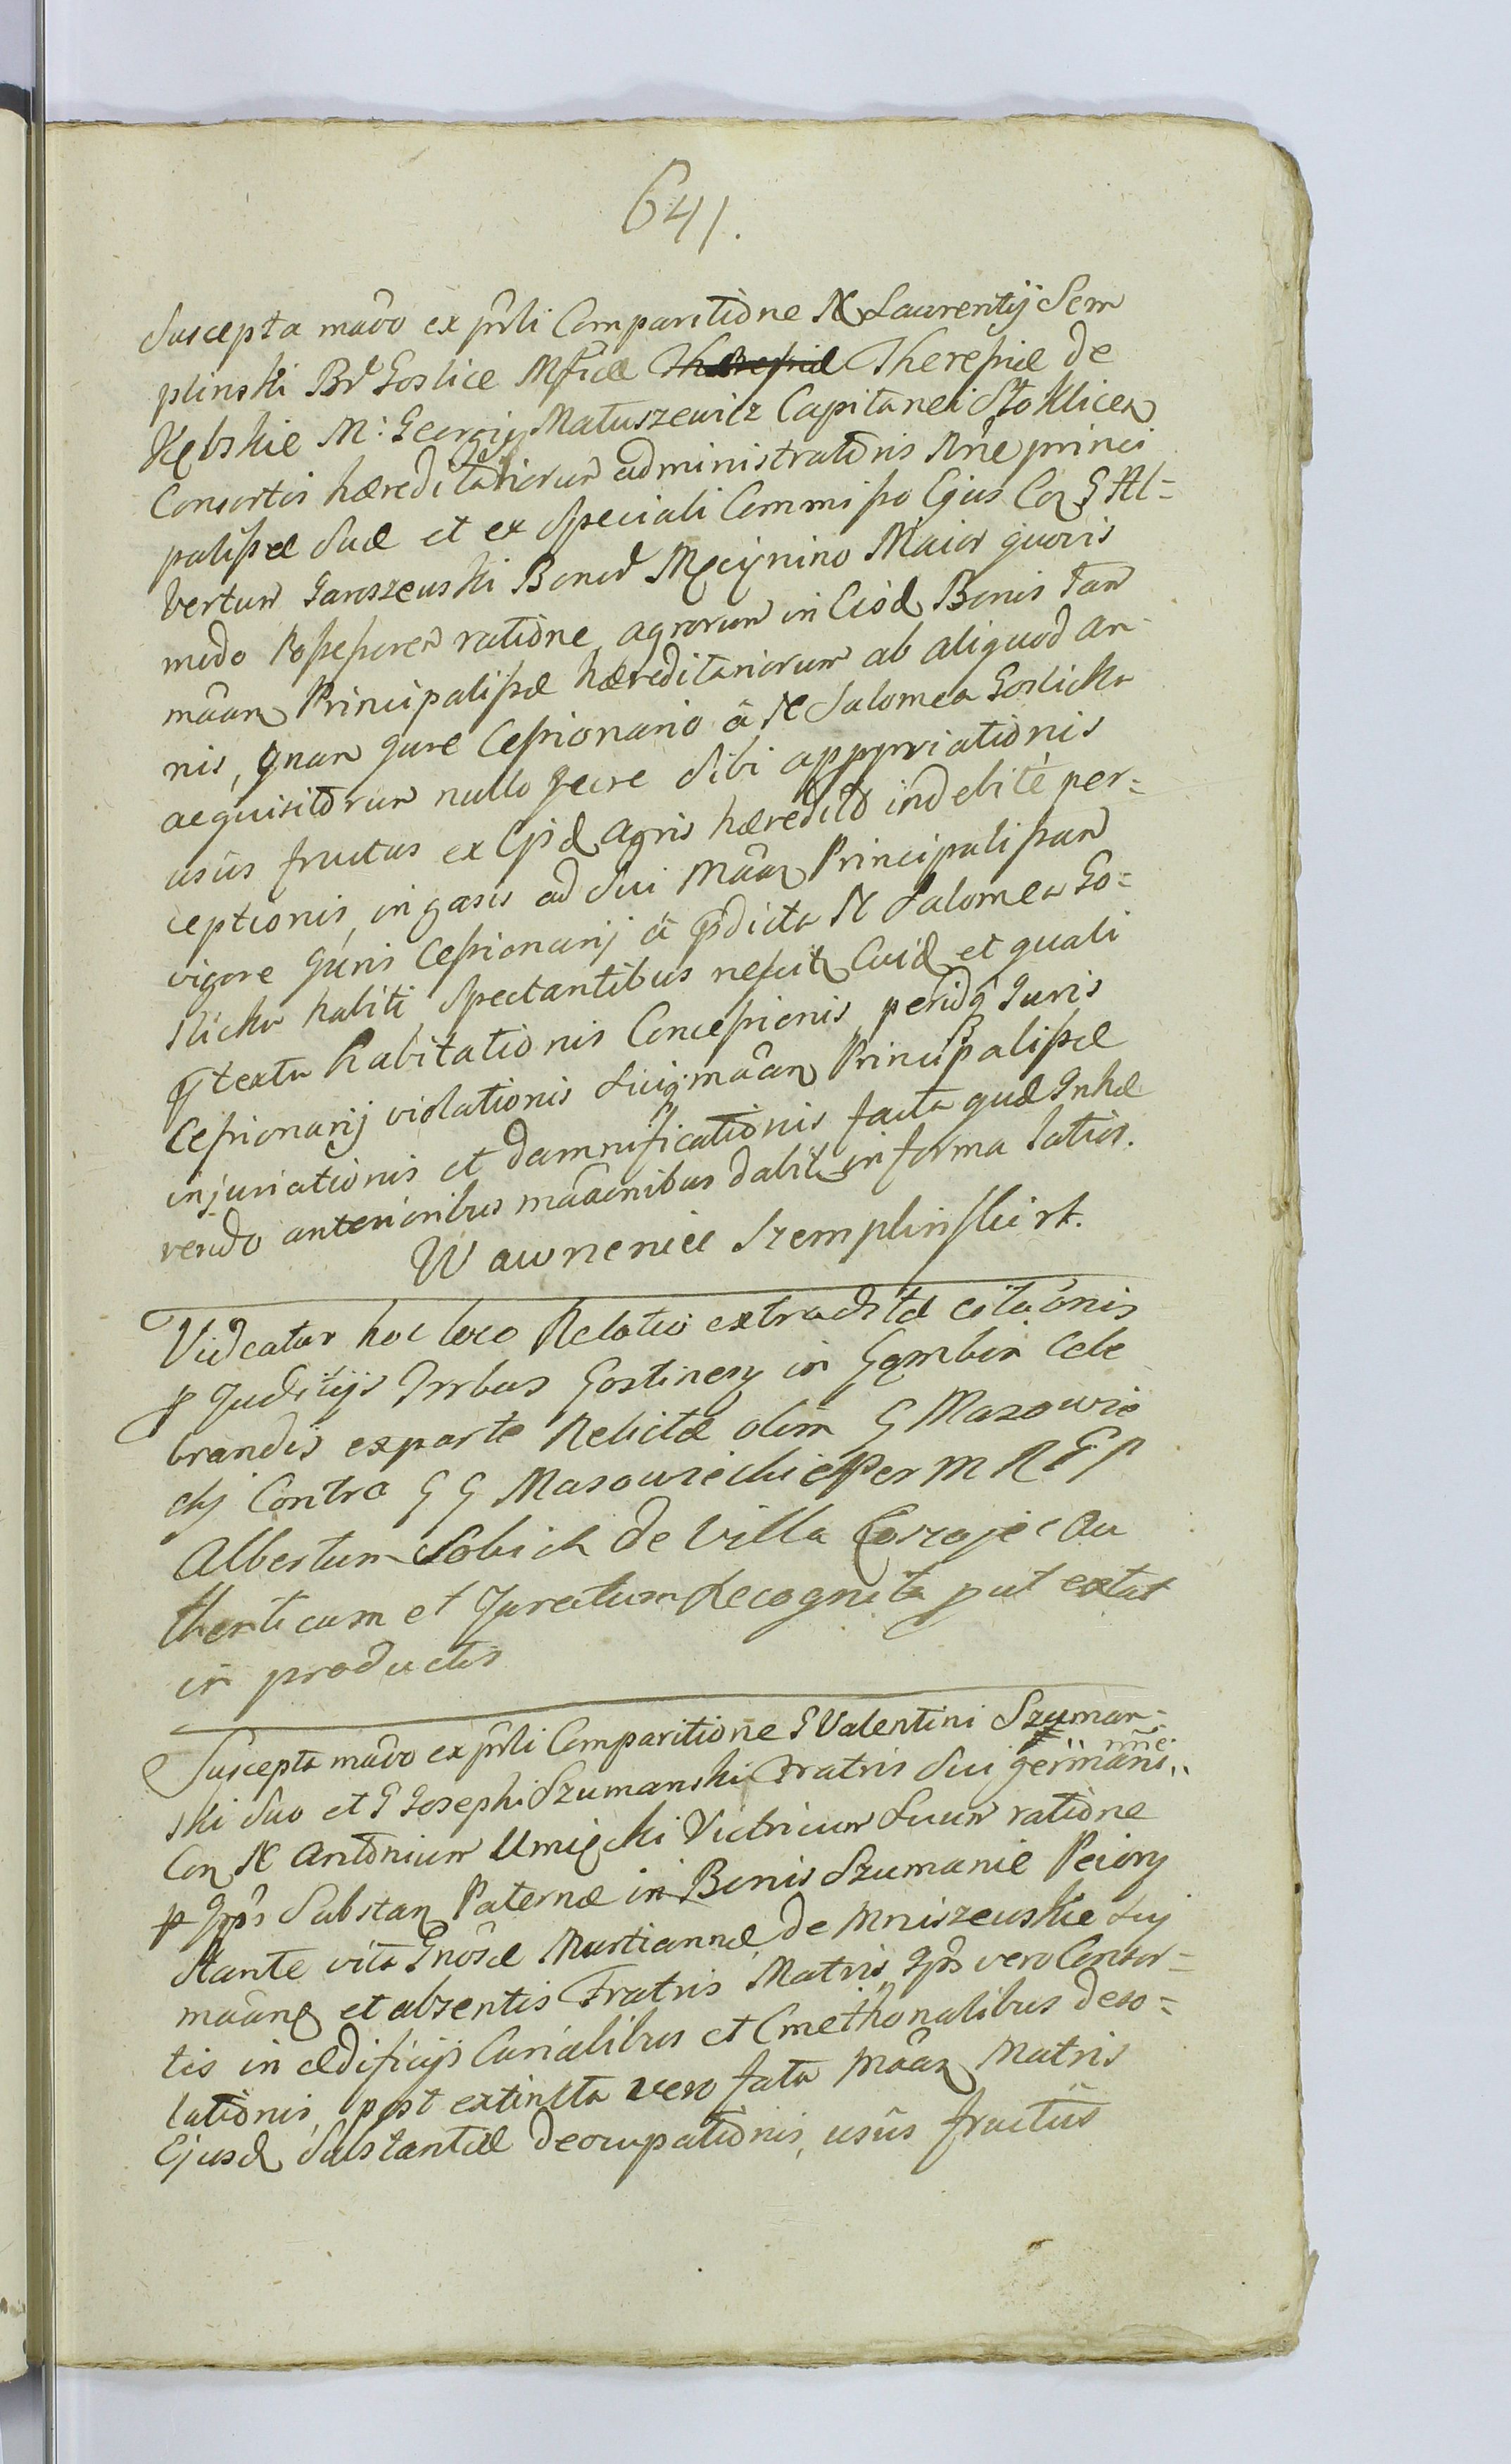 641.
Suscepta mãvo ex prñli Comparitione N Laurentij Sem
plinski Br̃ Goslice Mfcæ Theressiæ de
Kębskie M: Georgij Matuszewicz Capitanei Stoklicen
Consortis hæreditariorum administrationis Nrñe princi
palissæ Suæ et ex Speciali Commisso Ejus Con G Al=
bertum Jaroszewski Bonor Męcynino Maior quovis
modo Possessoren ratione agrorum in Eisd Bonis tam
mãan Principalissæ hæreditariorum ab aliquod an-
nis, quam Jure Cessionario â N Salomea Goslicka
acquisitorum nullo Jure Sibi appropriationis
usûs fructus ex Ejsd agris hæredito indebitè per=
ceptionis, in gasis ad Sui Mãan Principalissam
vigore Juris Cessionarij â pdicta N Salomea Go=
slicka habiti Spectantibus nescit Cuid et quali
ptextu habitationis Concessionis, peridq Juris
Cessionarij violationis Suijmãan Principalissæ
injuriationis et damnificationis facta quæ Inhæ
rendo anterioribus mãaonibus dabit in forma latior.
Wawrzeniec Szemplinski rt.
Videatur hoc loco Relatio extraditæ citãonis
p Juditijs Trrbus Gostinen in Gąmbin Cele
brandis exparte Relictæ olim G Mazowie
ckj Contra G G Mazowieckie Per M R G P
Albertum Sobich de Villa au
thenticum et Juratum Recognita put extat
in productis
Suscepta mãvo ex prñli Comparitione G Valentini Szuman=
ski Suo et G Josephi Szumanski Fratris Sui germani
Con N Antonium Umięcki Victricum Suum ratione
p Ipŝ Substan Paternæ in Bonis Szumanie Peiory
Stante vita Gnosæ Martiannæ de Mniszewskie Suj
maâne et absentis Fratris Matris, Ipŝ vero Consor=
tis in ædificijs Curialibus et Cmethonalibus deso=
lationis, post extincta vero fata Mãan Matris
Ejusd Substantiæ deocupationis, usûs fructûs